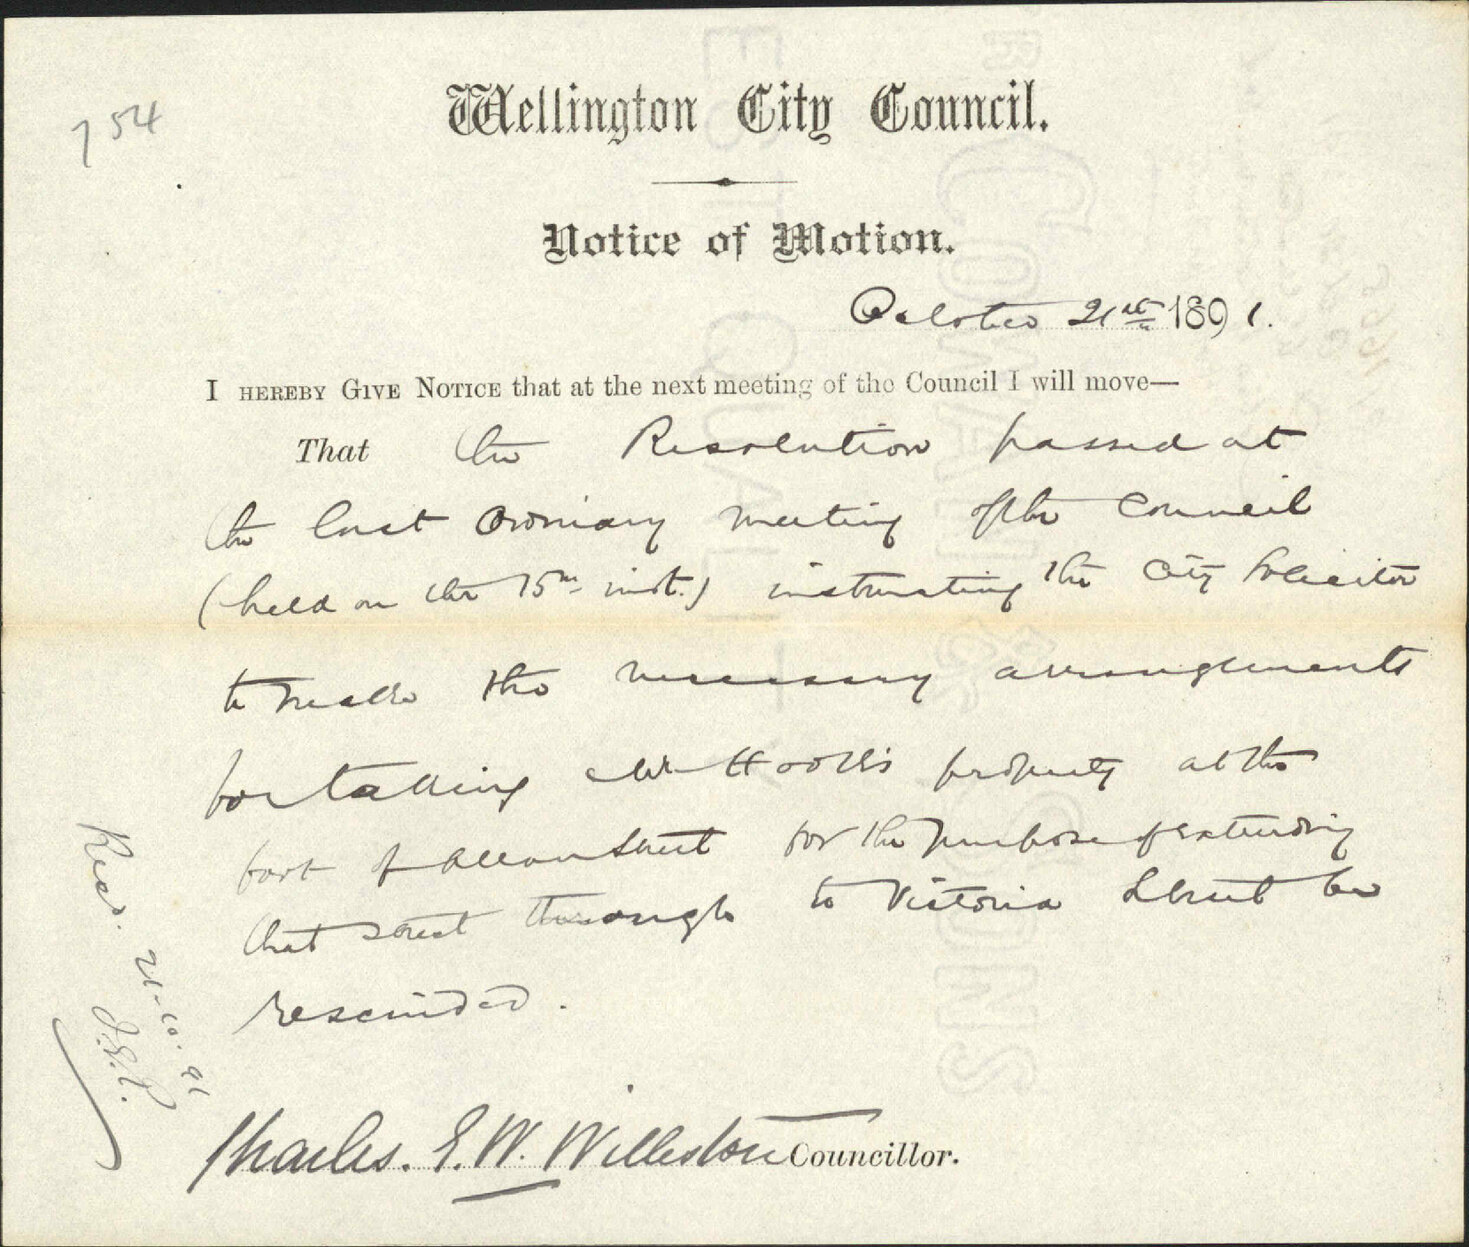 754
Wellington City Council.
Notice of Motion.
October 21st 1891.
I HEREBY GIVE NOTICE that at the next meeting of the Council I will move—
That the Resolution passed at
the last Ordinary meeting of the Council
(held on the 15th inst.) instructing the City Solicitor
to make the necessary arrangements
for taking Mr Hook's property at the
foot of Street for the purpose of extending
that street through to Victoria Street be
rescinded.
Recd. 21-10-91
Charles. E. W. Willeston Councillor.